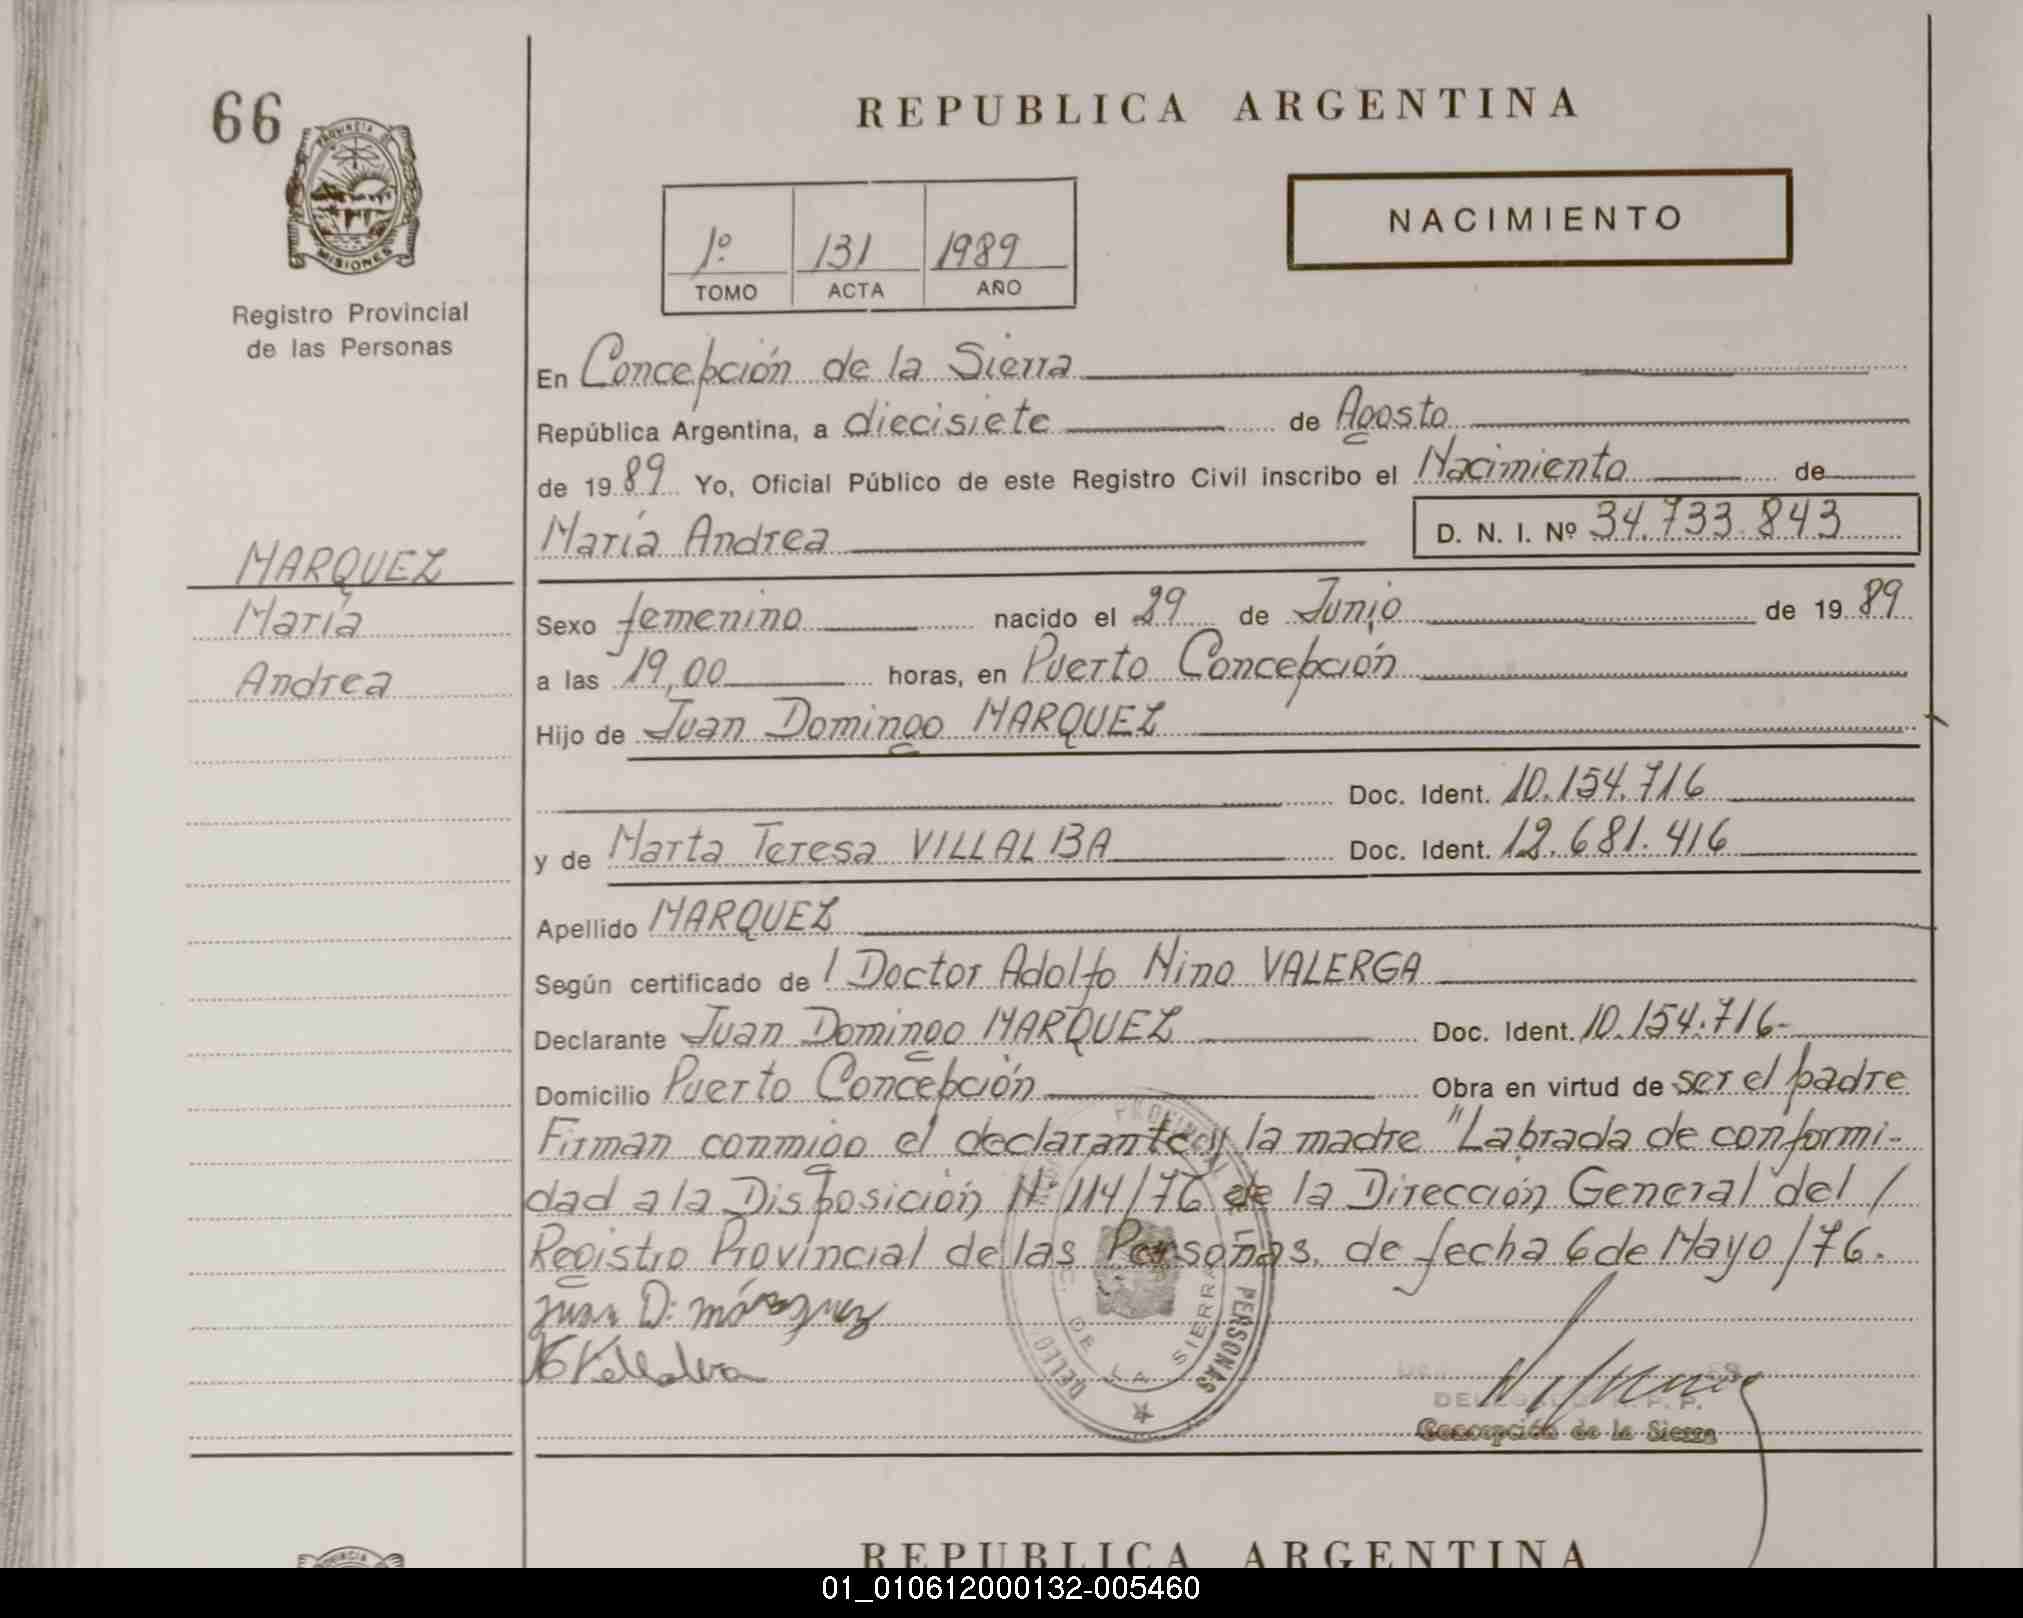 66
REPUBLICA ARGENTINA
PROVINCIA DE
MISIONES
Registro Provincial
de las Personas
1º 131 1989
TOMO ACTA AÑO
NACIMIENTO
En Concepción de la Sierra
República Argentina, a diecisiete de Agosto
de 1989 Yo, Oficial Público de este Registro Civil inscribo el Nacimiento de
María Andrea D. N. I. Nº 34.733.843
MARQUEZ
María
Andrea
Sexo femenino nacido el 29 de Junio de 1989
a las 19,00 horas, en Puerto Concepción
Hijo de Juan Domingo MARQUEZ
Doc. Ident. 10.154.716
y de Marta Teresa VILLALBA Doc. Ident. 12.681.416
Apellido MARQUEZ
Según certificado de / Doctor Adolfo Nino VALERGA
Declarante Juan Domingo MARQUEZ Doc. Ident. 10.154.716-
Domicilio Puerto Concepción Obra en virtud de ser el padre
Firman conmigo el declarante y la madre "Labrada de conformi-
dad a la Disposición Nº 114/76 de la Dirección General del /
Registro Provincial de las Personas, de fecha 6 de Mayo /76.
Juan D. Márquez
PROVINCIAL DE LAS PERSONAS
C. DE LA SIERRA
DELEG
DELEGADO R. P. P.
Concepción de la Sierra
REPUBLICA ARGENTINA
01_010612000132-005460